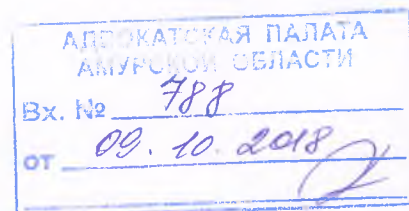 АДВОКАТСКАЯ ПАЛАТА
АМУРСКОЙ ОБЛАСТИ
Вх. № 788
от 09.10.2018